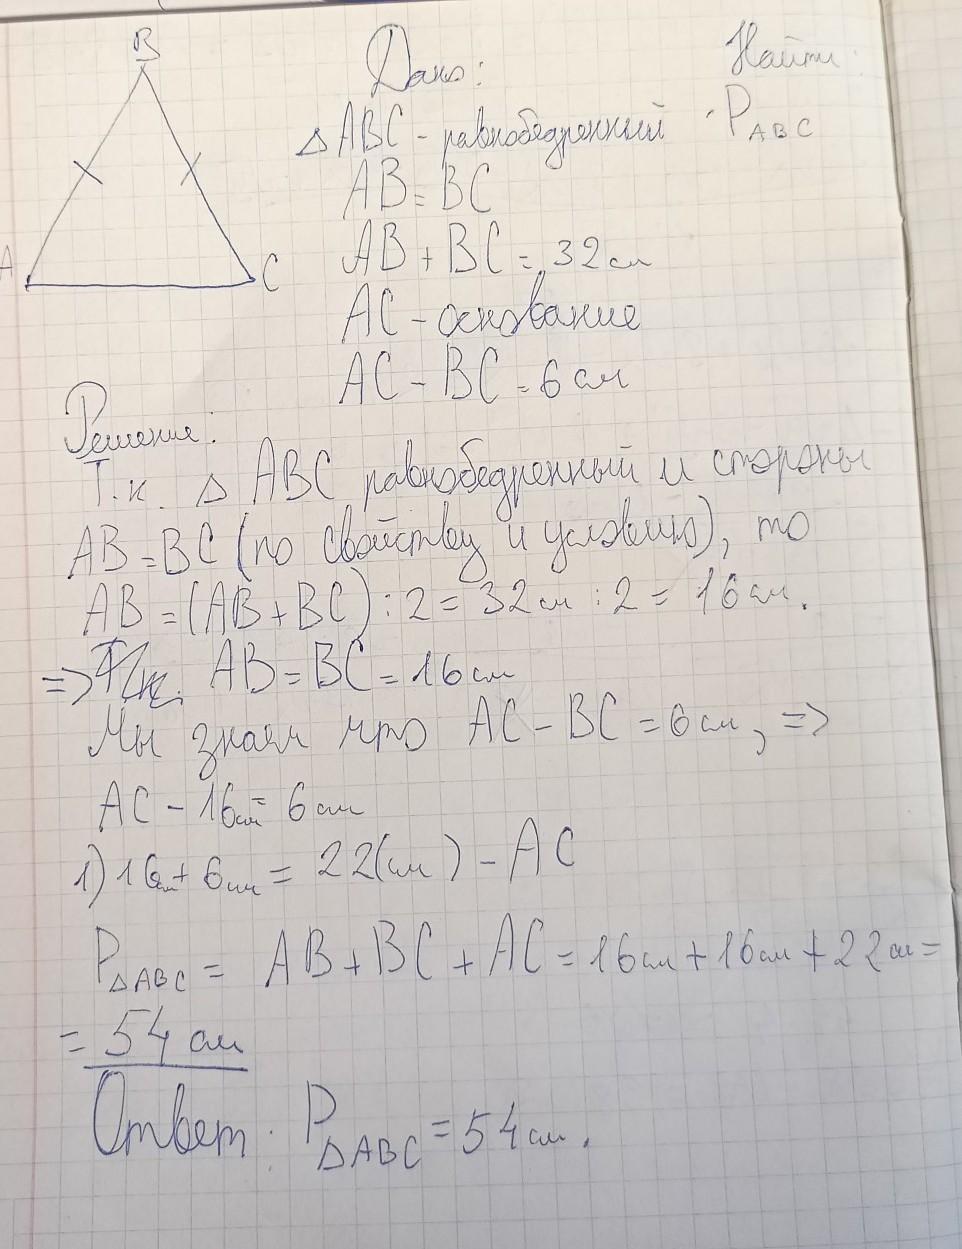 B
A
C
Дано:
Найти:
△ABC - равнобедренный
P ABC
AB = BC
AB + BC = 32 см
AC - основание
AC - BC = 6 см
Решение:
Т.к. △ ABC равнобедренный и стороны
AB = BC (по свойству и условию), то
AB = (AB + BC) : 2 = 32 см : 2 = 16 см.
=> AB = BC = 16 см
Мы знаем что AC - BC = 6 см, =>
AC - 16 см = 6 см
1) 16 см + 6 см = 22 (см) - AC
P△ABC = AB + BC + AC = 16 см + 16 см + 22 см =
= 54 см
Ответ: P△ABC = 54 см.